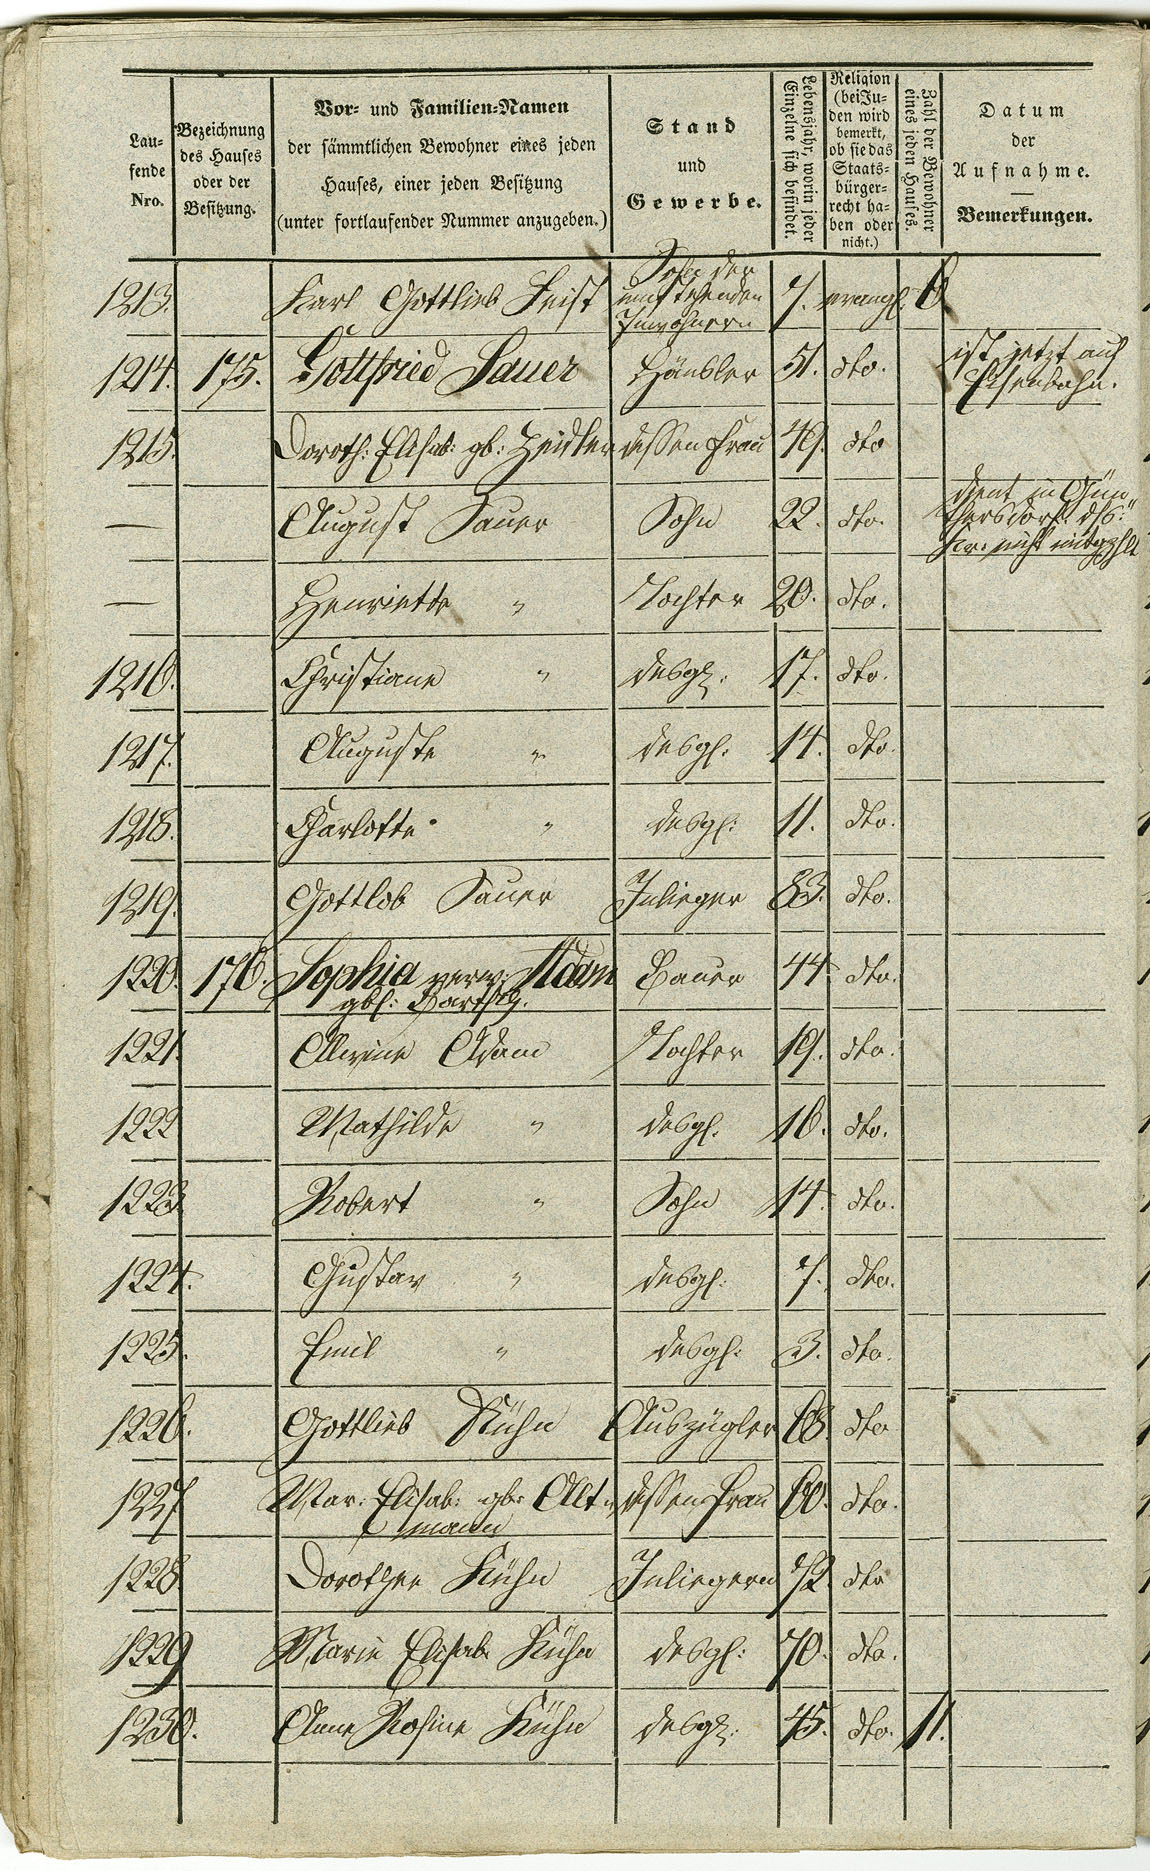 Lau-
fende
Nro.
Bezeichnung
des Hauses
oder der
Besitzung.
Vor- und Familien-Namen
der sämmtlichen Bewohner eines jeden
Hauses, einer jeden Besitzung
(unter fortlaufender Nummer anzugeben.)
Stand
und
Gewerbe.
Lebensjahr, worin jeder
Einzelne sich befindet.
Religion
(bei Ju-
den wird
bemerkt,
ob sie das
Staats-
bürger-
recht ha-
ben oder
nicht.)
Zahl der Bewohner
eines jeden Hauses.
Datum
der
Aufnahme.
Bemerkungen.
1213. Karl Gottlieb Feist Sohn der 7. evangl. 6.
Inwohnern
1214. 175. Gottfried Sauer Häusler 51. dto. ist jetzt auf
Eisenbahn.
1215. Doroth: Elisab: gb: Zeidler dessen Frau 49. dto
— August Sauer Sohn 22. dto. dient in Gün-
thersdorf
— Henriette " Tochter 20. dto.
1216. Christiane " desgl. 17. dto.
1217. Auguste " desgl: 14. dto.
1218. Charlotte " desgl: 11. dto.
1219. Gottlob Sauer Inlieger 83. dto.
1220. 176. Sophia verw: Adam Bauer 44. dto.
1221. Allwine Adam Tochter 19. dto.
1222 Mathilde " desgl. 16. dto.
1223 Robert " Sohn 14. dto.
1224. Gustav " desgl: 7. dto.
1225. Emil " desgl: 3. dto.
1226. Gottlieb Kühn Auszügler 68. dto
1227 Mar: Elisab: gb: Alt- dessen Frau 60. dto.
mann
1228. Dorothee Kühn Inliegern 72. dto
1229 Marie Elisab. Kühn desgl: 70. dto.
1230. Anna Rosine Kühn desgl: 45. dto. 11.